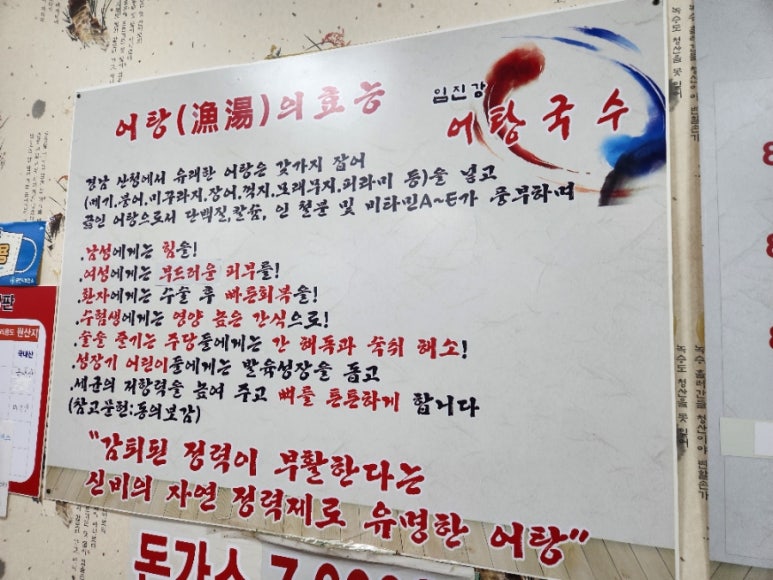 어탕(漁湯)의효능
임진강
어탕국수
경남 산청에서 유래한 어탕은 갖가지 잡어
(메기,붕어,미꾸라지,장어,꺽지,모래무지,피라미 등)을 넣고
끓인 어탕으로서 단백질,칼슘, 인 철분 및 비타민A~E가 풍부하며
.남성에게는 힘을!
.여성에게는 부드러운 피부를!
.환자에게는 수술 후 빠른회복을!
.수험생에게는 영양 높은 간식으로!
.술을 즐기는 주당들에게는 간 해독과 숙취 해소!
.성장기 어린이들에게는 발육성장을 돕고
.세균의 저항력을 높여 주고 뼈를 튼튼하게 합니다
(참고문헌:동의보감)
"감퇴된 정력이 부활한다는
신비의 자연 정력제로 유명한 어탕"
돈가스
원산지
국내산
녹수도 청산을 못 잊어
녹수 흘러간들 청산이야 변할손가